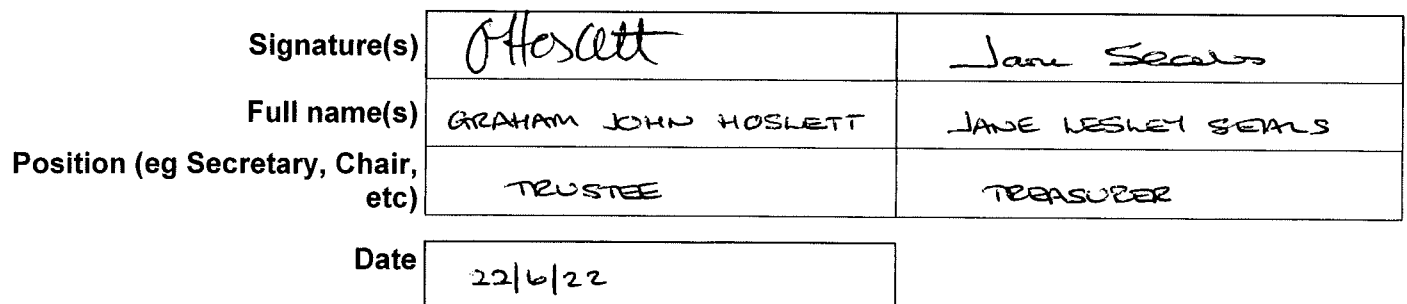 Signature(s) GHoslett Jane Seals
Full name(s) GRAHAM JOHN HOSLETT JANE LESLEY SEALS
Position (eg Secretary, Chair,
etc) TRUSTEE TREASURER
Date 22/6/22